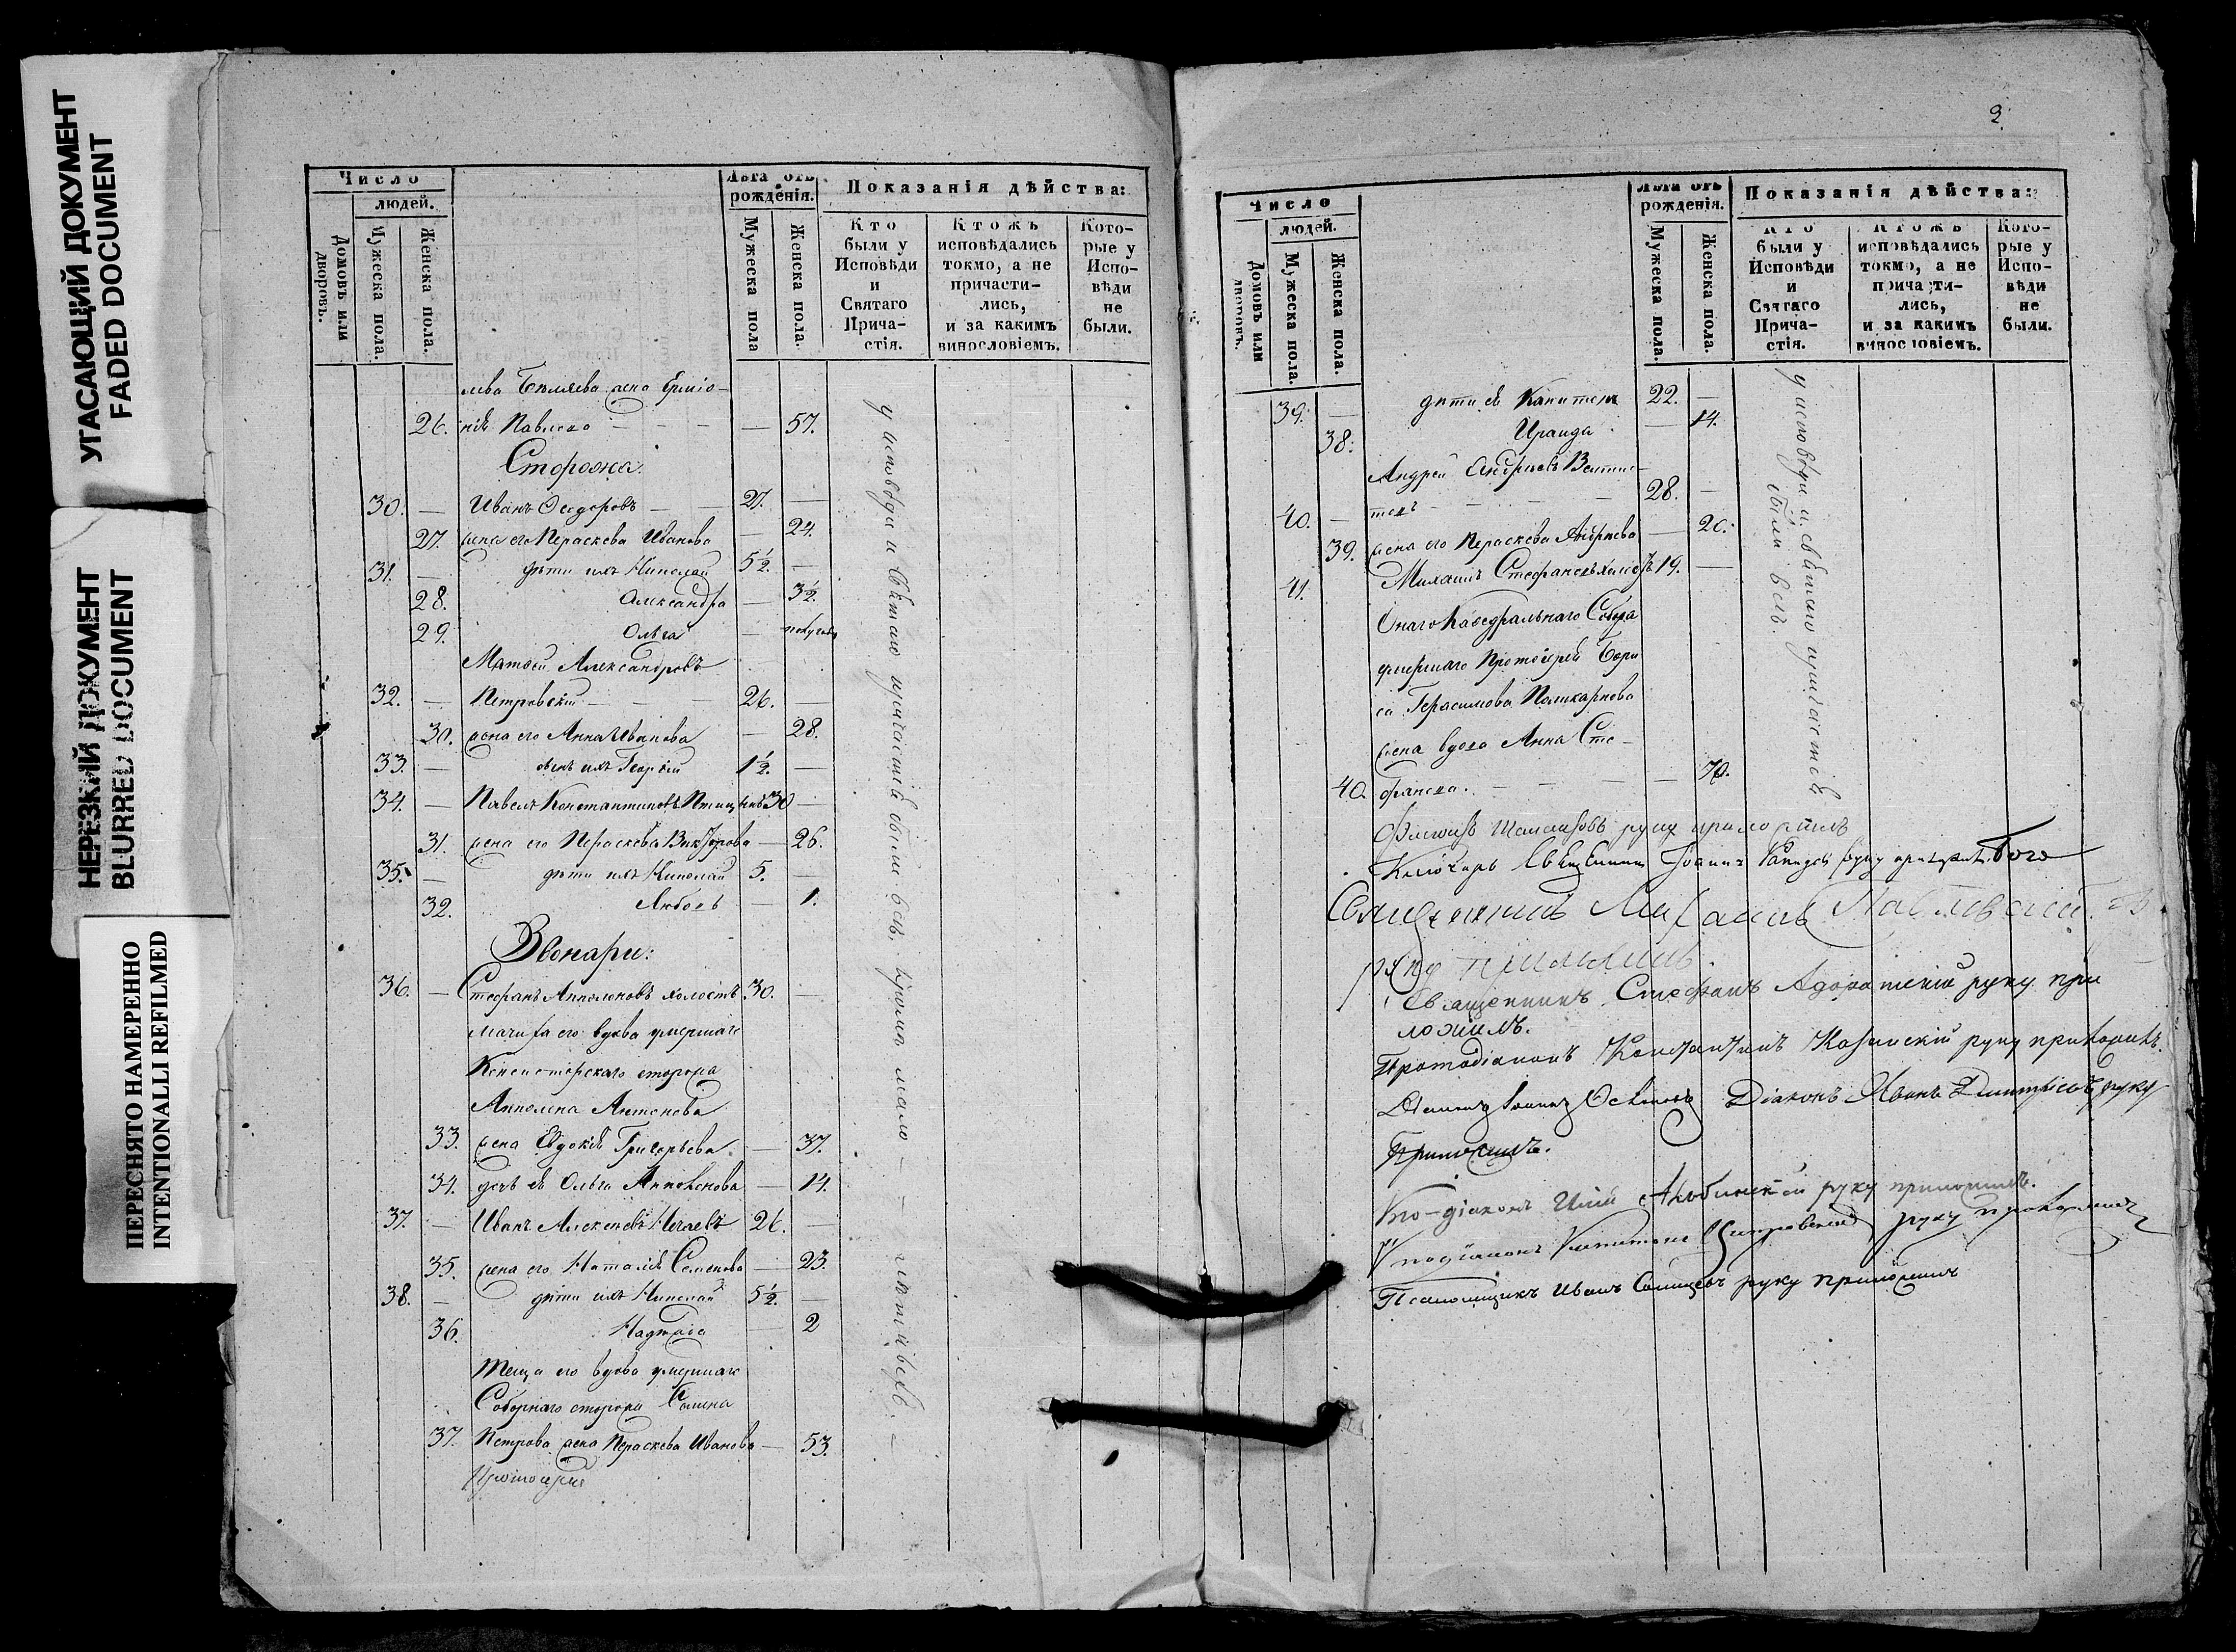 УГАСАЮЩИЙ ДОКУМЕНТ
FADED DOCUMENT
НЕРЕЗКИЙ ДОКУМЕНТ
BLURRED DOCUMENT
ПЕРЕСНЯТО НАМЕРЕННО
INTENTIONALLI REFILMED
Число
людей.
Домовъ или дворовъ.
Мужеска пола.
Женска пола.
Лѣта отъ рожденія.
Мужеска пола
Женска пола.
Показанія дѣйства:
Кто были у Исповѣди и Святаго Прича-стія.
Ктожъ исповѣдались токмо, а не причасти-лись, и за какимъ винословіемъ.
Кото-рые у Испо-вѣди не были.
лева Бѣляева жена Ерміо-
26. нія Павлова — 57.
Сторожа:
30. — Иванъ Ѳеодоровъ — 27. —
27. жена его Параскева Иванова — 24.
31. — дѣти ихъ Николай 5½. —
28. Александра — 3½.
29. Ольга — полугода
Матѳей Александровъ
32. — Петровскій — 26. —
30. жена его Анна Иванова — 28.
33. — сынъ ихъ Георгій 1½. —
34. — Павелъ Константиновъ Птицынъ 30 —
31. жена его Параскева Викторова — 26.
35. — дѣти ихъ Николай 5. —
32. Любовь — 1.
Звонари:
36. — Стефанъ Апполоновъ холостъ 30. —
Мачиха его вдова умершаго
Консисторскаго сторожа
Апполона Антонова
33. жена Евдокія Григорьева — 37.
34. дочь ея Ольга Апполонова — 14.
37. — Иванъ Алексѣевъ Нечаевъ 26. —
35. жена его Наталія Семенова — 23.
38. — дѣти ихъ Николай 5½. —
36. Надежда — 2
Теща его вдова умершаго
Соборнаго сторожа
37. Петрова жена Параскева Иванова — 53.
Протоіерей
у исповѣди и святаго причастія были всѣ, кромѣ мало — лѣтнихъ. —
2
Число
людей.
Домовъ или дворовъ.
Мужеска пола.
Женска пола.
Лѣта отъ рожденія.
Мужеска пола.
Женска пола.
Показанія дѣйства:
Кто были у Исповѣди и Святаго Прича-стія.
Ктожъ исповѣдались токмо, а не причасти-лись, и за какимъ винословіемъ.
Кото-рые у Испо-вѣди не были.
39. — дѣти ея Капитонъ 22. —
38. Ираида — 14.
Андрей Андреевъ
40. — 28. —
39. жена его Параскева Андреева — 20.
41. Михаилъ Стефановъ холостъ 19. —
Онаго Каѳедральнаго Собора
умершаго Протоіерея Бори
са Герасимова Поликарпова
жена вдова Анна Сте-
40. фанова. — 70.
у исповѣди и святаго причастія были всѣ.
руку приложилъ
Ключарь Священникъ Іоаннъ руку приложилъ
Священникъ Михаилъ Павловскій
руку приложилъ.
Священникъ Стефанъ Адоратскій руку при
ложилъ.
Протодіаконъ Константинъ Казанскій руку приложилъ.
Діаконъ Іоаннъ Діаконъ Иванъ Димитріевъ руку
Приложилъ.
руку приложилъ.
Иподіаконъ Капитонъ руку приложилъ
Псаломщикъ Иванъ руку приложилъ